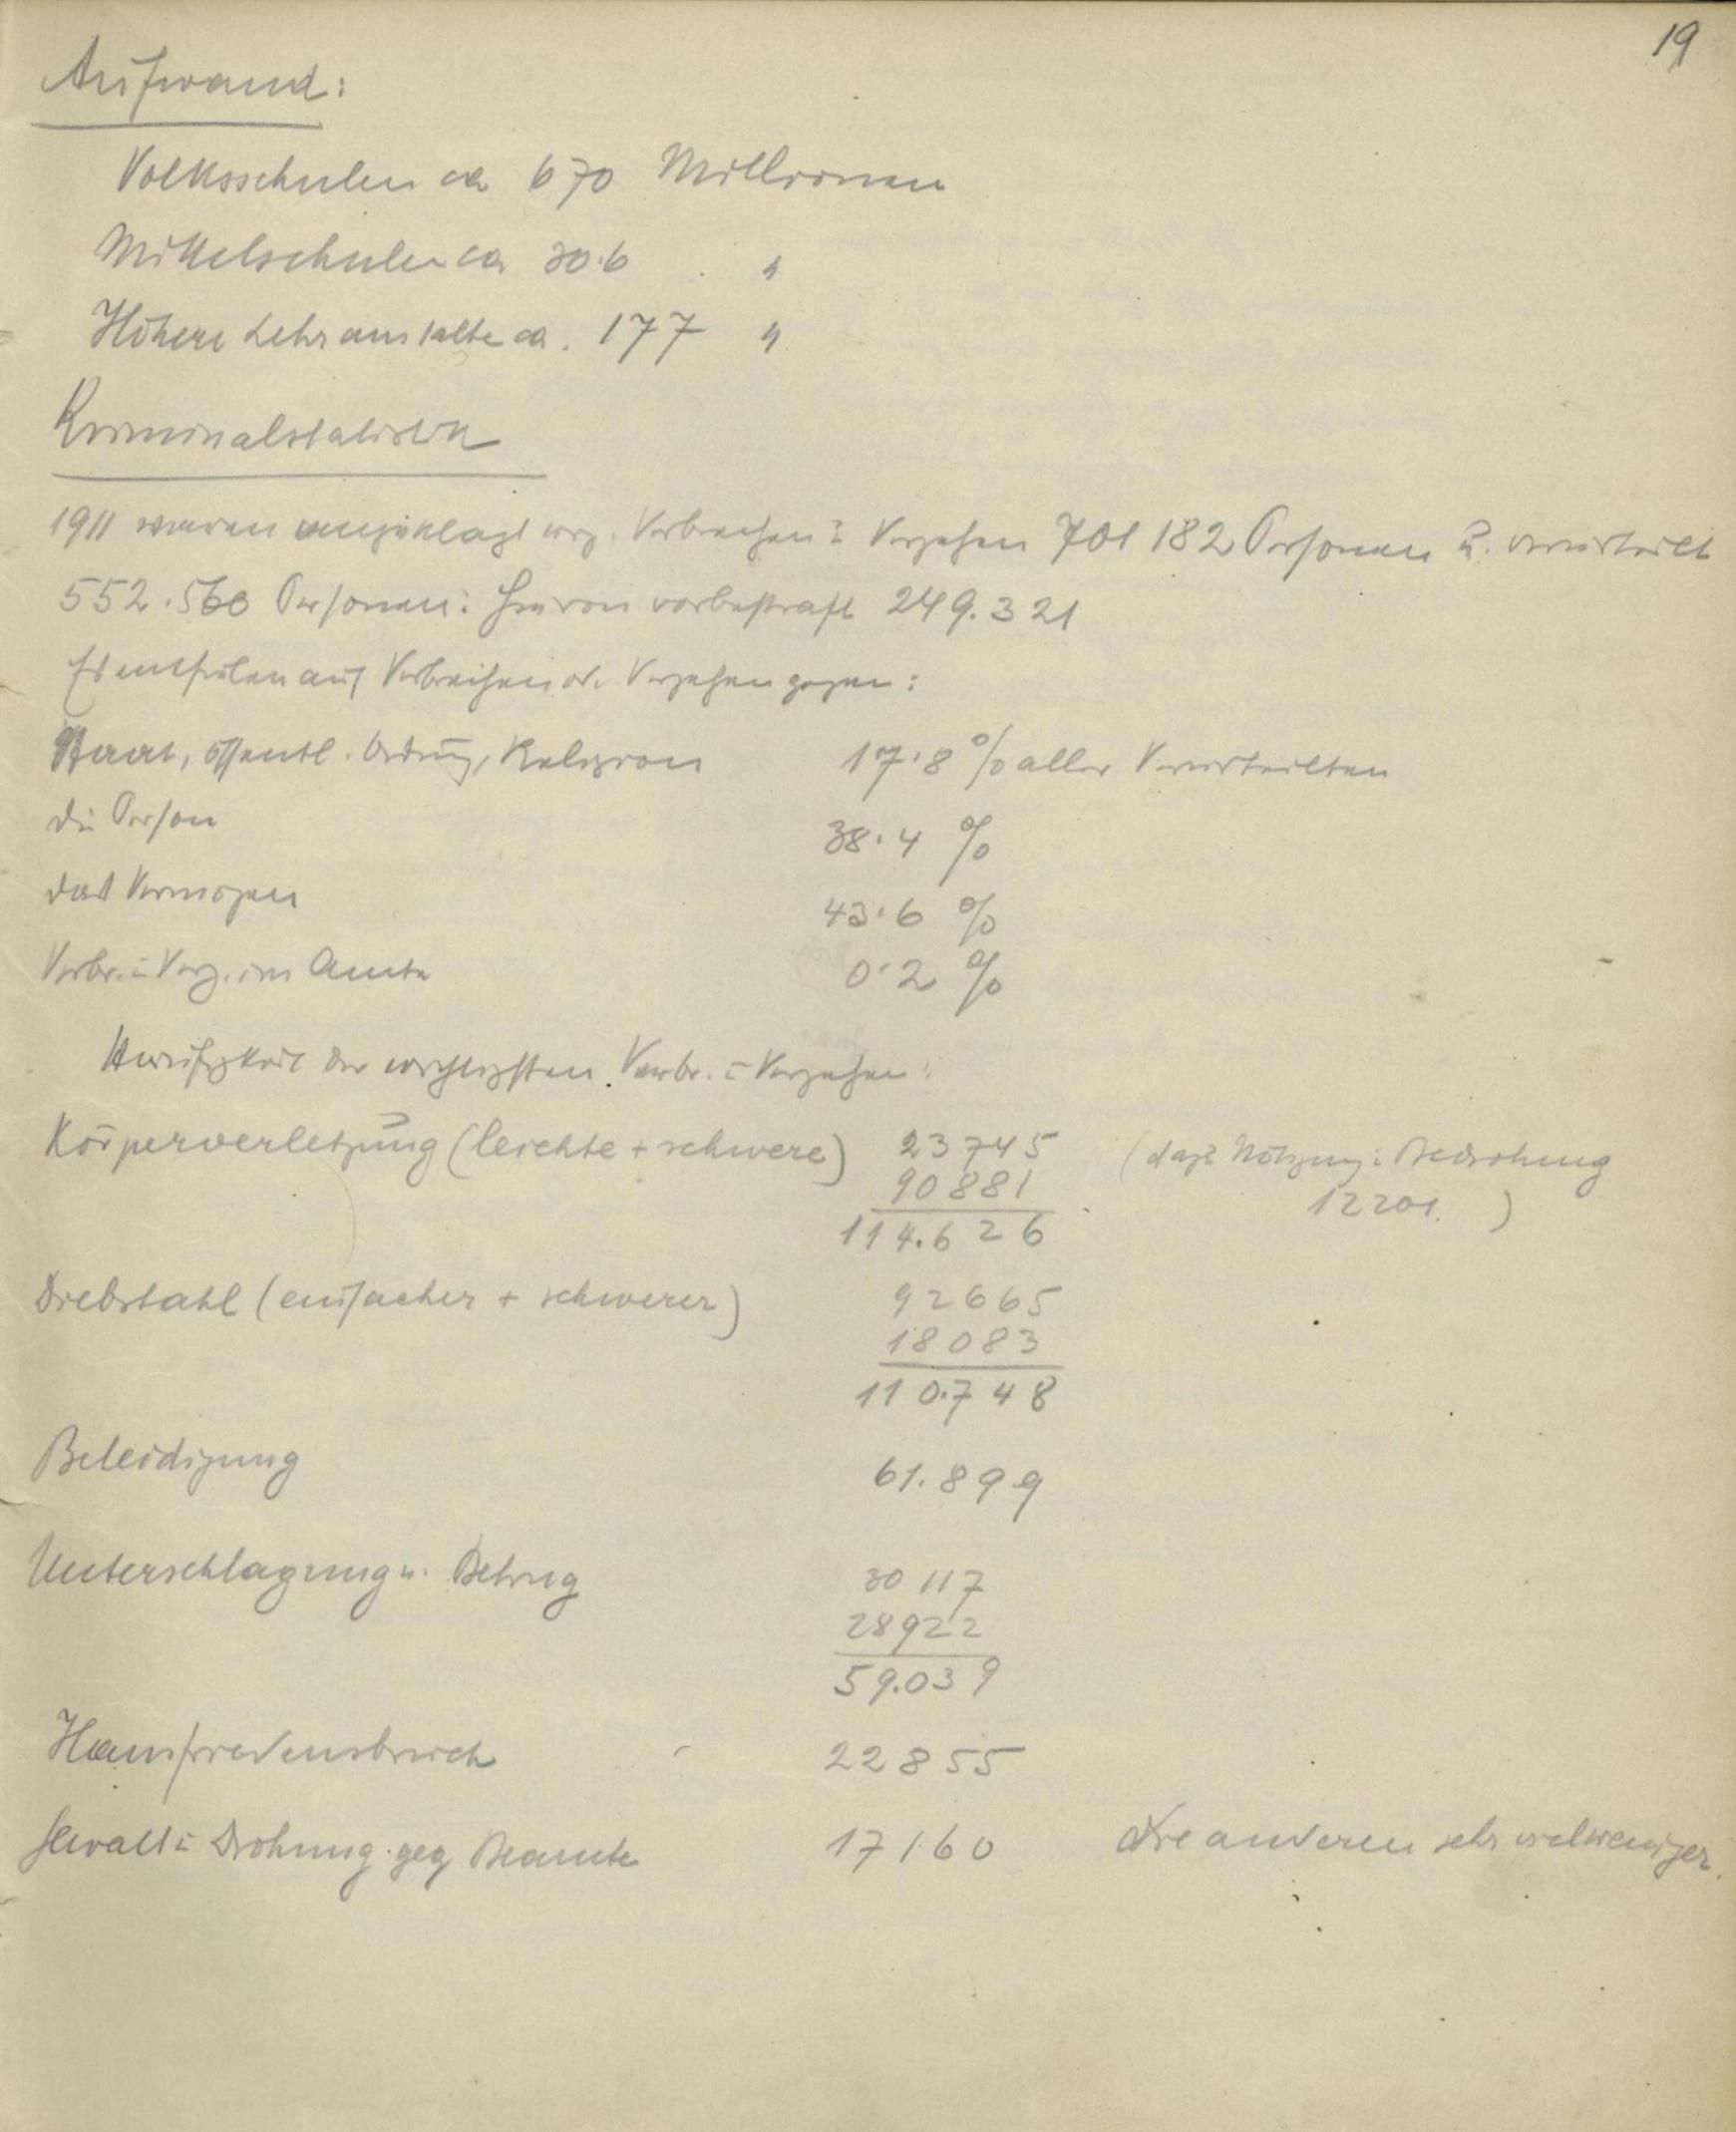 19
Aufwand:
Volksschulen ca 670 Millionen
Mittelschulen ca 30.6 "
Höhere Lehranstalte ca. 177 "
Kriminalstatistik
1911 waren angeklagt weg. Verbrechen u Vergehen 701 182 Personen u. verurteilt
552.560 Personen: hievon vorbestraft 249.321
Es entfielen auf Verbrechen od. Vergehen gegen:
Staat, öffentl. Ordnung, Religion 17.8 % aller Verurteilten
die Person 38.4 %
das Vermögen 43.6 %
Verbr. u Verg. im Amte 0.2 %
Haeufigkeit der wichtigsten Verbr. u Vergehen:
Körperverletzung (leichte + schwere) 23 745 (dazu Nötigung u Bedrohung
90881 12201. )
114.626
Diebstahl (einfacher + schwerer) 92665
18083
110.748
Beleidigung 61.899
Unterschlagung u. Betrug 30 117
28922
59.039
Hausfriedensbruch 22855
Gewalt u Drohung geg Beamte 17160 die anderen sehr viel weniger.